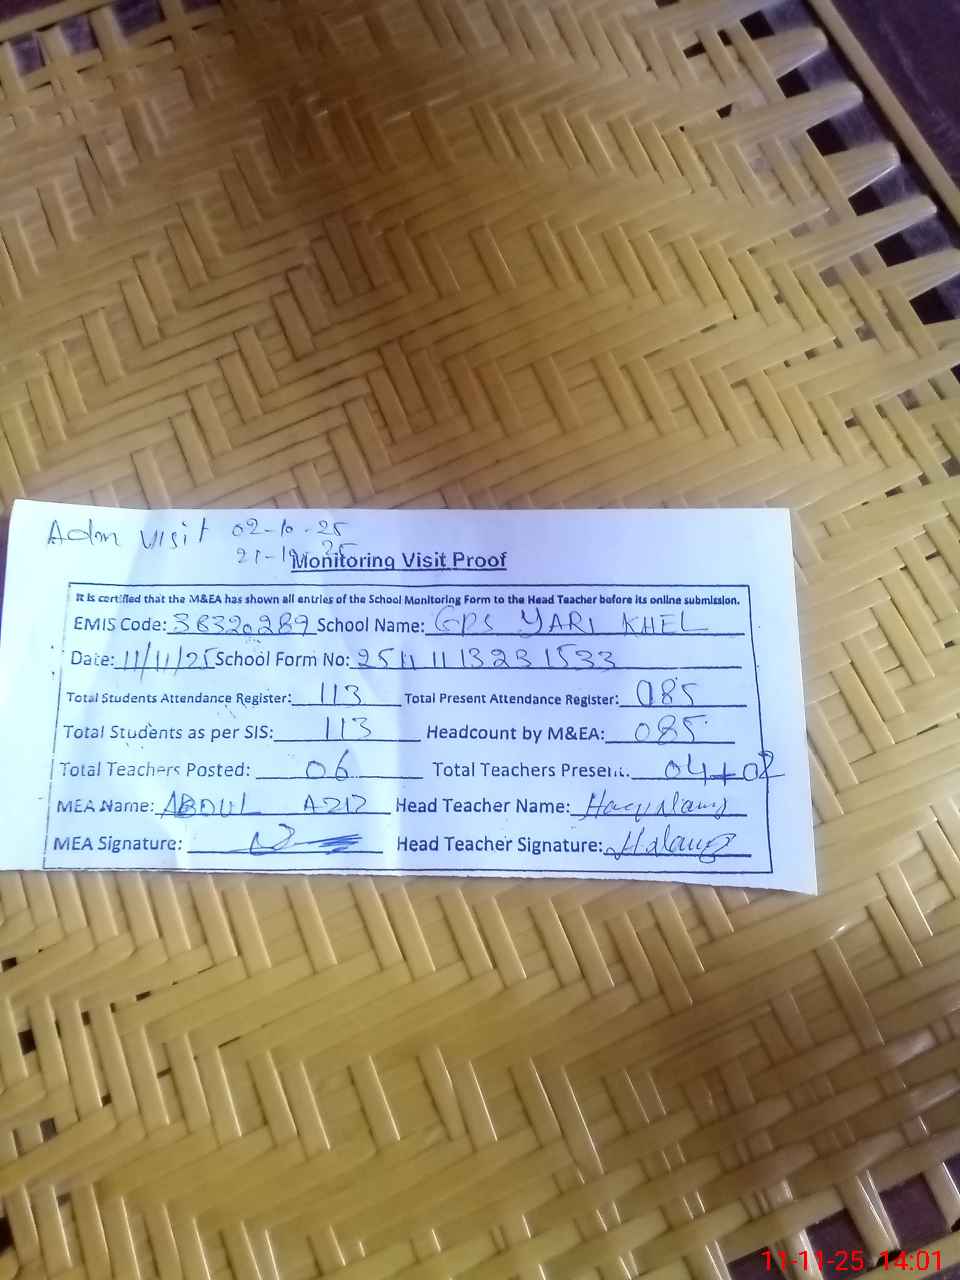 Adm visit 02-10-25
21-10-25
Monitoring Visit Proof
It is certified that the M&EA has shown all entries of the School Monitoring Form to the Head Teacher before its online submission.
EMIS Code: 38320289 School Name: GPS YARI KHEL
Date: 11/11/25 School Form No: 2511 11 1323 1533
Total Students Attendance Register: 113 Total Present Attendance Register: 085
Total Students as per SIS: 113 Headcount by M&EA: 085
Total Teachers Posted: 06 Total Teachers Present: 04+02
MEA Name: ABDUL AZIZ Head Teacher Name:
MEA Signature: Head Teacher Signature:
11-11-25 14:01